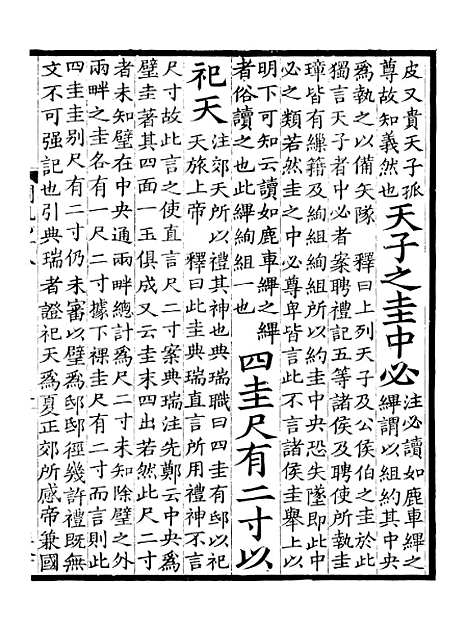 皮又貴天子孤
尊故知義然也
天子之圭中必
注必讀如鹿車縪之
縪謂以組約其中央
爲執之以備矢隊　釋曰上列天子及公侯伯之圭於此
獨言天子者中必者案聘禮記五等諸侯及聘使所執圭
璋皆有繅籍及絢組絢組所以約圭中央恐失墜即此中
必之類若然圭之中必尊卑皆言此不言諸侯圭舉上以
明下可知云讀如鹿車縪之縪
者俗讀之也此縪絢組一也
四圭尺有二寸以
祀天
注郊天所以禮其神也典瑞職曰四圭有邸以祀
天旅上帝　釋曰此圭典瑞直言所用禮神不言
尺寸故此言之使直言尺二寸案典瑞注先鄭云中央爲
璧圭著其四面一玉俱成又云圭末四出若然此尺二寸
者未知璧在中央通兩畔總計爲尺二寸未知除璧之外
兩畔之圭各有一尺二寸據下祼圭尺有二寸而言則此
四圭圭別尺有二寸仍未審以璧爲邸邸徑幾許禮既無
文不可强記也引典瑞者證祀天爲夏正郊所感帝兼國